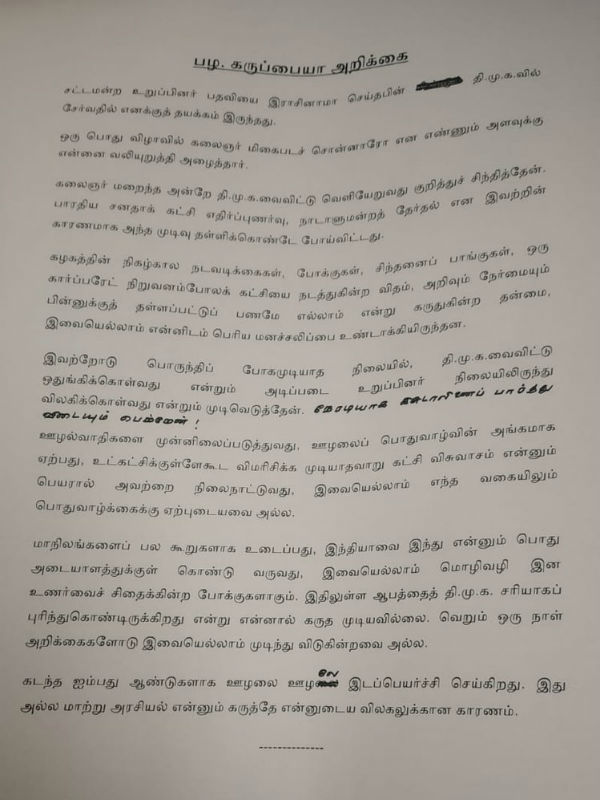 பழ. கருப்பையா அறிக்கை
சட்டமன்ற உறுப்பினர் பதவியை இராசினாமா செய்தபின் தி.மு.கவில்
சேர்வதில் எனக்குத் தயக்கம் இருந்தது.
ஒரு பொது விழாவில் கலைஞர் மிகைபடச் சொன்னாரோ என எண்ணும் அளவுக்கு
என்னை வலியுறுத்தி அழைத்தார்.
கலைஞர் மறைந்த அன்றே தி.மு.கவைவிட்டு வெளியேறுவது குறித்துச் சிந்தித்தேன்.
பாரதிய சனதாக் கட்சி எதிர்ப்புணர்வு, நாடாளுமன்றத் தேர்தல் என இவற்றின்
காரணமாக அந்த முடிவு தள்ளிக்கொண்டே போய்விட்டது.
கழகத்தின் நிகழ்கால நடவடிக்கைகள், போக்குகள், சிந்தனைப் பாங்குகள், ஒரு
கார்ப்பரேட் நிறுவனம்போலக் கட்சியை நடத்துகின்ற விதம், அறிவும் நேர்மையும்
பின்னுக்குத் தள்ளப்பட்டுப் பணமே எல்லாம் என்று கருதுகின்ற தன்மை,
இவையெல்லாம் என்னிடம் பெரிய மனச்சலிப்பை உண்டாக்கியிருந்தன.
இவற்றோடு பொருந்திப் போகமுடியாத நிலையில், தி.மு.க.வைவிட்டு
ஒதுங்கிக்கொள்வது என்றும் அடிப்படை உறுப்பினர் நிலையிலிருந்து
விலகிக்கொள்வது என்றும் முடிவெடுத்தேன். நேரடியாக ஸ்டாலினைப் பார்த்து
விடையும் பெற்றேன்!
ஊழல்வாதிகளை முன்னிலைப்படுத்துவது, ஊழலைப் பொதுவாழ்வின் அங்கமாக
ஏற்பது, உட்கட்சிக்குள்ளேகூட விமரிசிக்க முடியாதவாறு கட்சி விசுவாசம் என்னும்
பெயரால் அவற்றை நிலைநாட்டுவது, இவையெல்லாம் எந்த வகையிலும்
பொதுவாழ்க்கைக்கு ஏற்புடையவை அல்ல.
மாநிலங்களைப் பல கூறுகளாக உடைப்பது, இந்தியாவை இந்து என்னும் பொது
அடையாளத்துக்குள் கொண்டு வருவது, இவையெல்லாம் மொழிவழி இன
உணர்வைச் சிதைக்கின்ற போக்குகளாகும். இதிலுள்ள ஆபத்தைத் தி.மு.க. சரியாகப்
புரிந்துகொண்டிருக்கிறது என்று என்னால் கருத முடியவில்லை. வெறும் ஒரு நாள்
அறிக்கைகளோடு இவையெல்லாம் முடிந்து விடுகின்றவை அல்ல.
கடந்த ஐம்பது ஆண்டுகளாக ஊழலை ஊழலே இடப்பெயர்ச்சி செய்கிறது. இது
அல்ல மாற்று அரசியல் என்னும் கருத்தே என்னுடைய விலகலுக்கான காரணம்.
--------------